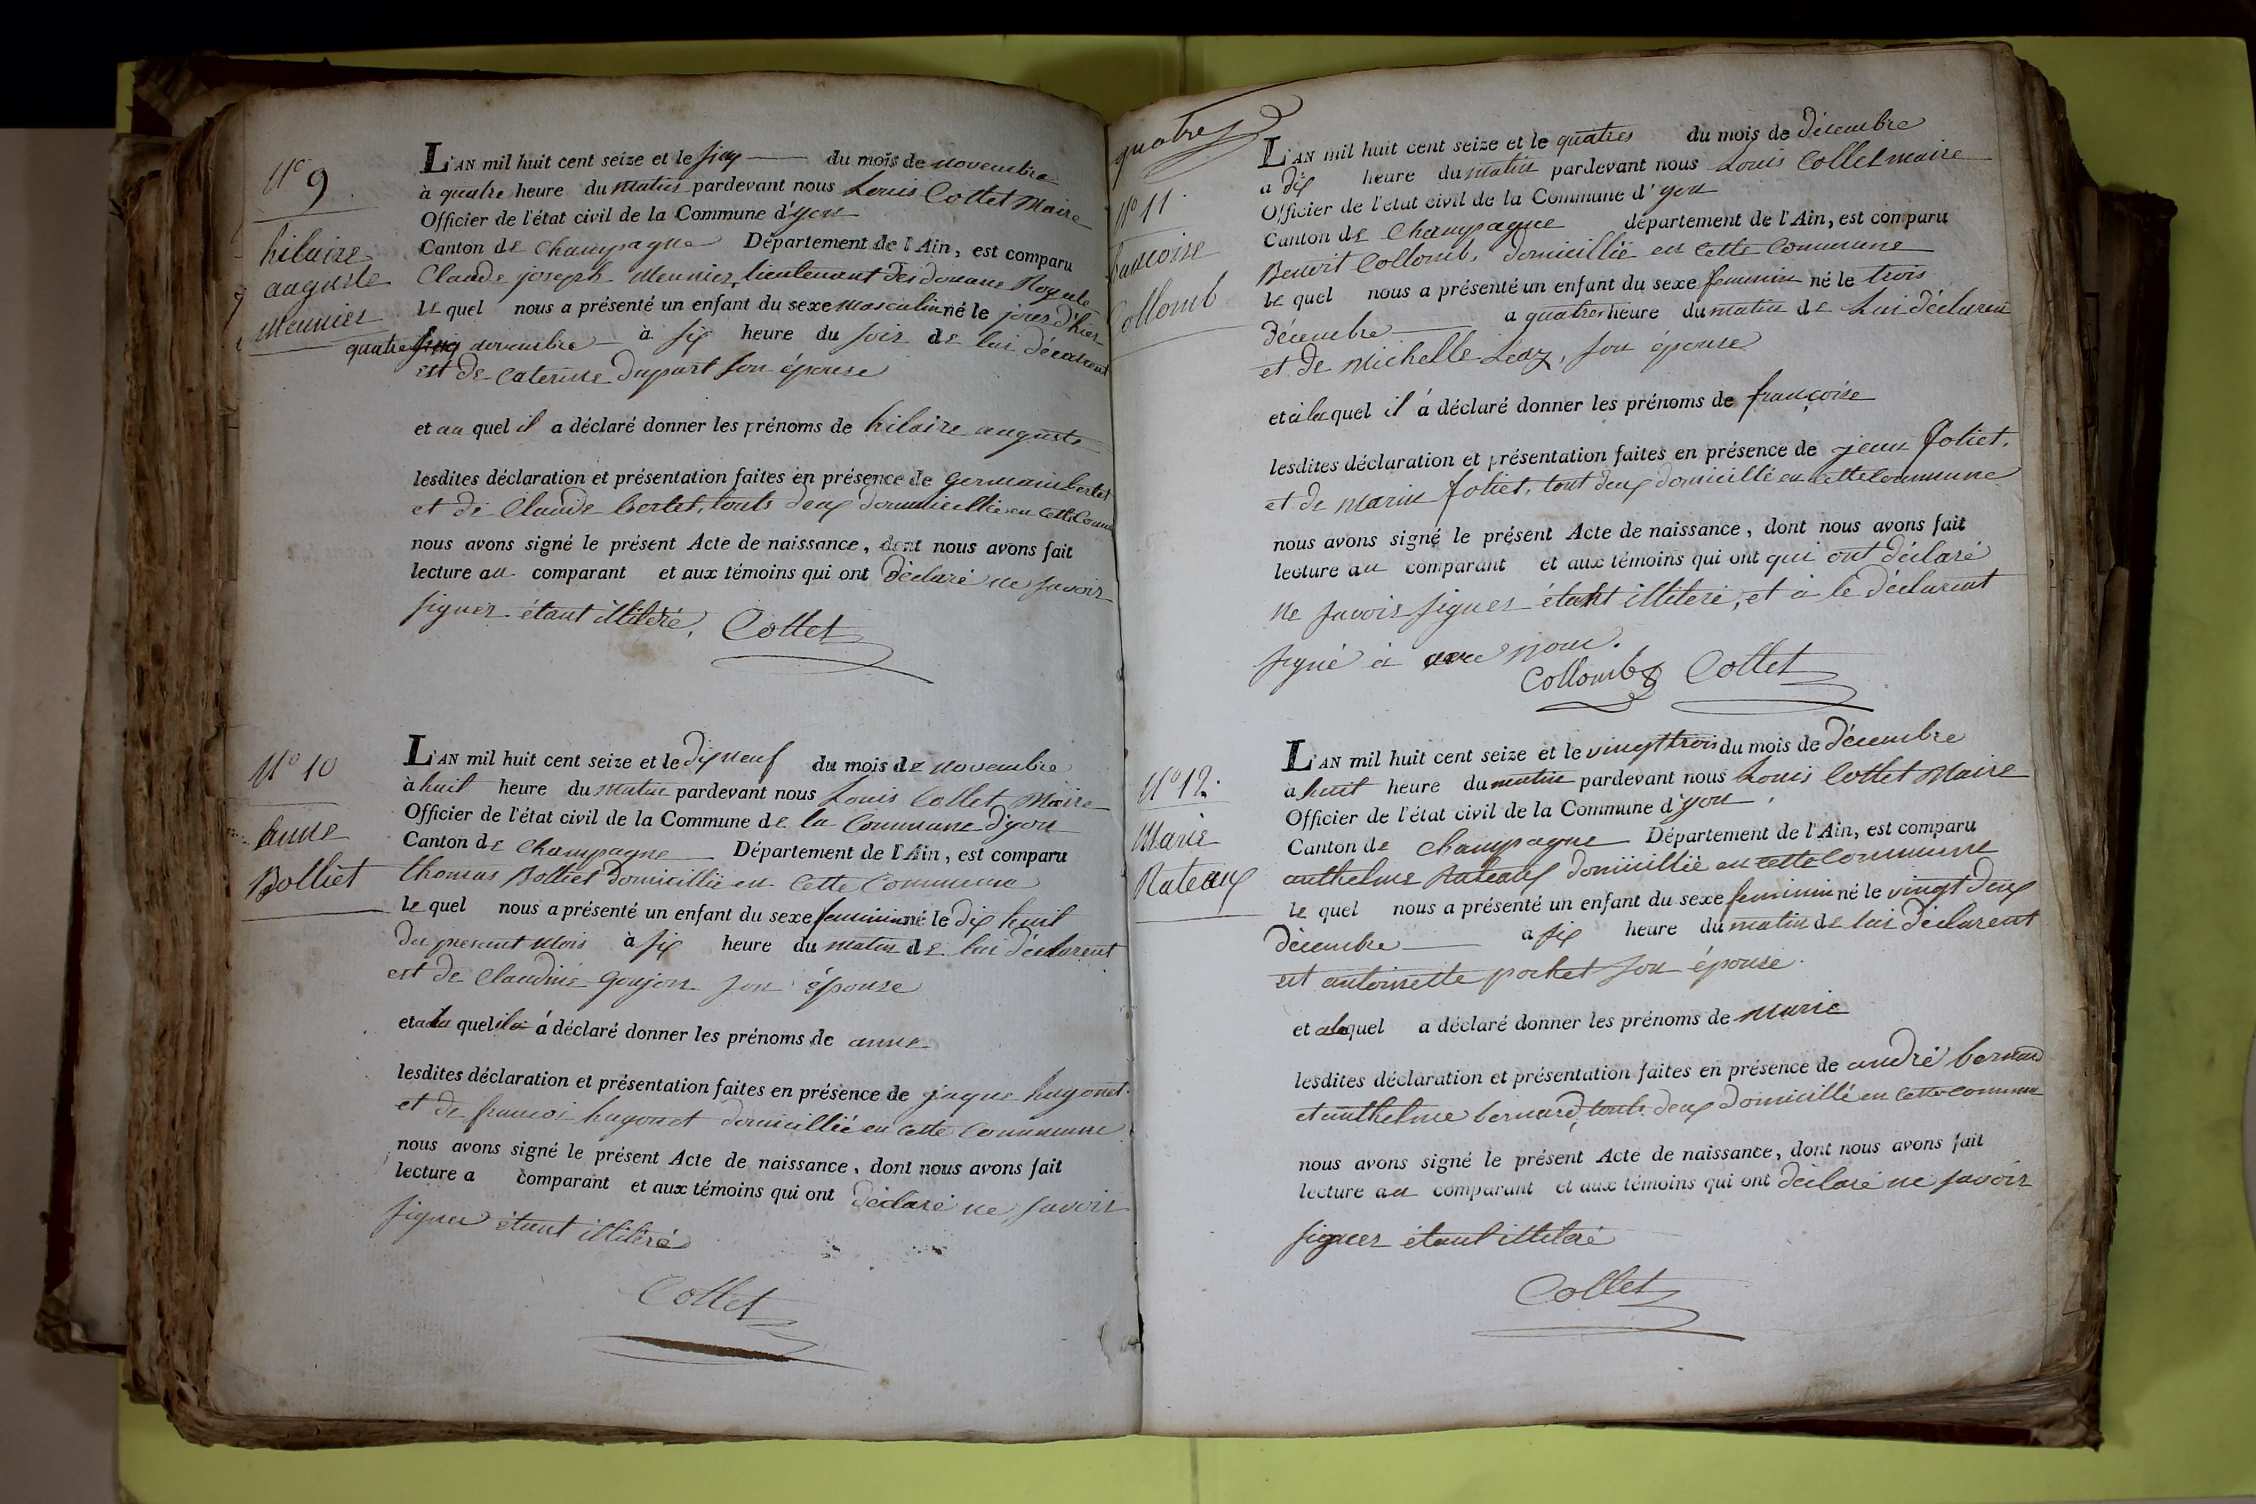 N° 9
hilaire
auguste
Meunier
L'AN mil huit cent seize et le du mois de novembre
à quatre heure du matin pardevant nous Louis Collet Maire
Officier de l'état civil de la Commune d'yon
Canton de Champagne Département de l'Ain, est comparu
Claude joseph Meunier, lieutenant des douane Royale
le quel nous a présenté un enfant du sexe masculin né le jour d'hier
quatre novembre à six heure du soir de lui déclarent
est de caterine dupart son épouse
et au quel il a déclaré donner les prénoms de hilaire auguste
lesdites déclaration et présentation faites en présence de germain bertet
et de Claude bertet, touts deux dommicillié en cette Comm
nous avons signé le présent Acte de naissance, dont nous avons fait
lecture au comparant et aux témoins qui ont déclaré ne savoir
signer étant illitéré. Collet
N° 10
anne
Bolliet
L'AN mil huit cent seize et le dix neuf du mois de novembre
à huit heure du matin pardevant nous Louis Collet Maire
Officier de l'état civil de la Commune de la Commune d'yon
Canton de Champagne Département de l'Ain, est comparu
thomas Bolliet domicillié en cette Commune
le quel nous a présenté un enfant du sexe feminin né le dix huit
du present mois à six heure du matin de lui déclarent
est de Claudine goujon son épouse
et a la quel il a déclaré donner les prénoms de anne
lesdites déclaration et présentation faites en présence de jaque hugonet
et de francoi hugonet domicillié en cette Commune
nous avons signé le présent Acte de naissance, dont nous avons fait
lecture a comparant et aux témoins qui ont déclaré ne savoir
signer étant illitéré
Collet
quatre
N° 11
francoise
Collomb
L'AN mil huit cent seize et le quatres du mois de décembre
a dix heure du matin pardevant nous Louis Collet maire
Officier de l'état civil de la Commune d'yon
Canton de Champagne département de l'Ain, est comparu
Benoit Collomb, domicillié en cette Commune
le quel nous a présenté un enfant du sexe feminin né le trois
décembre a quatres heure du matin de lui déclarent
et de Michelle Leaz, son épouse
et à la quel il a déclaré donner les prénoms de françoise
lesdites déclaration et présentation faites en présence de jean joliet.
et de marin joliet, tout deux domicillé en cette Commune
nous avons signé le présent Acte de naissance, dont nous avons fait
lecture au comparant et aux témoins qui ont qui ont déclaré
ne savoir signer étant illiteré, et à le déclarent
signé à avec nous.
Collomb Collet
N° 12.
Marie
Rateaux
L'AN mil huit cent seize et le vingt trois du mois de décembre
à huit heure du matin pardevant nous Louis Collet Maire
Officier de l'état civil de la Commune d'yon
Canton de Champagne Département de l'Ain, est comparu
anthelme Rateaux domicillié en cette Commune
le quel nous a présenté un enfant du sexe feminin né le vingt deux
décembre a six heure du matin de lui déclarent
est antoinette pochet son épouse.
et a la quel a déclaré donner les prénoms de marie
lesdites déclaration et présentation faites en présence de andré bernard
et anthelme bernard, touts deux domicillé en cette Commune
nous avons signé le présent Acte de naissance, dont nous avons fait
lecture au comparant et aux témoins qui ont déclaré ne savoir
signer étant illiteré
Collet